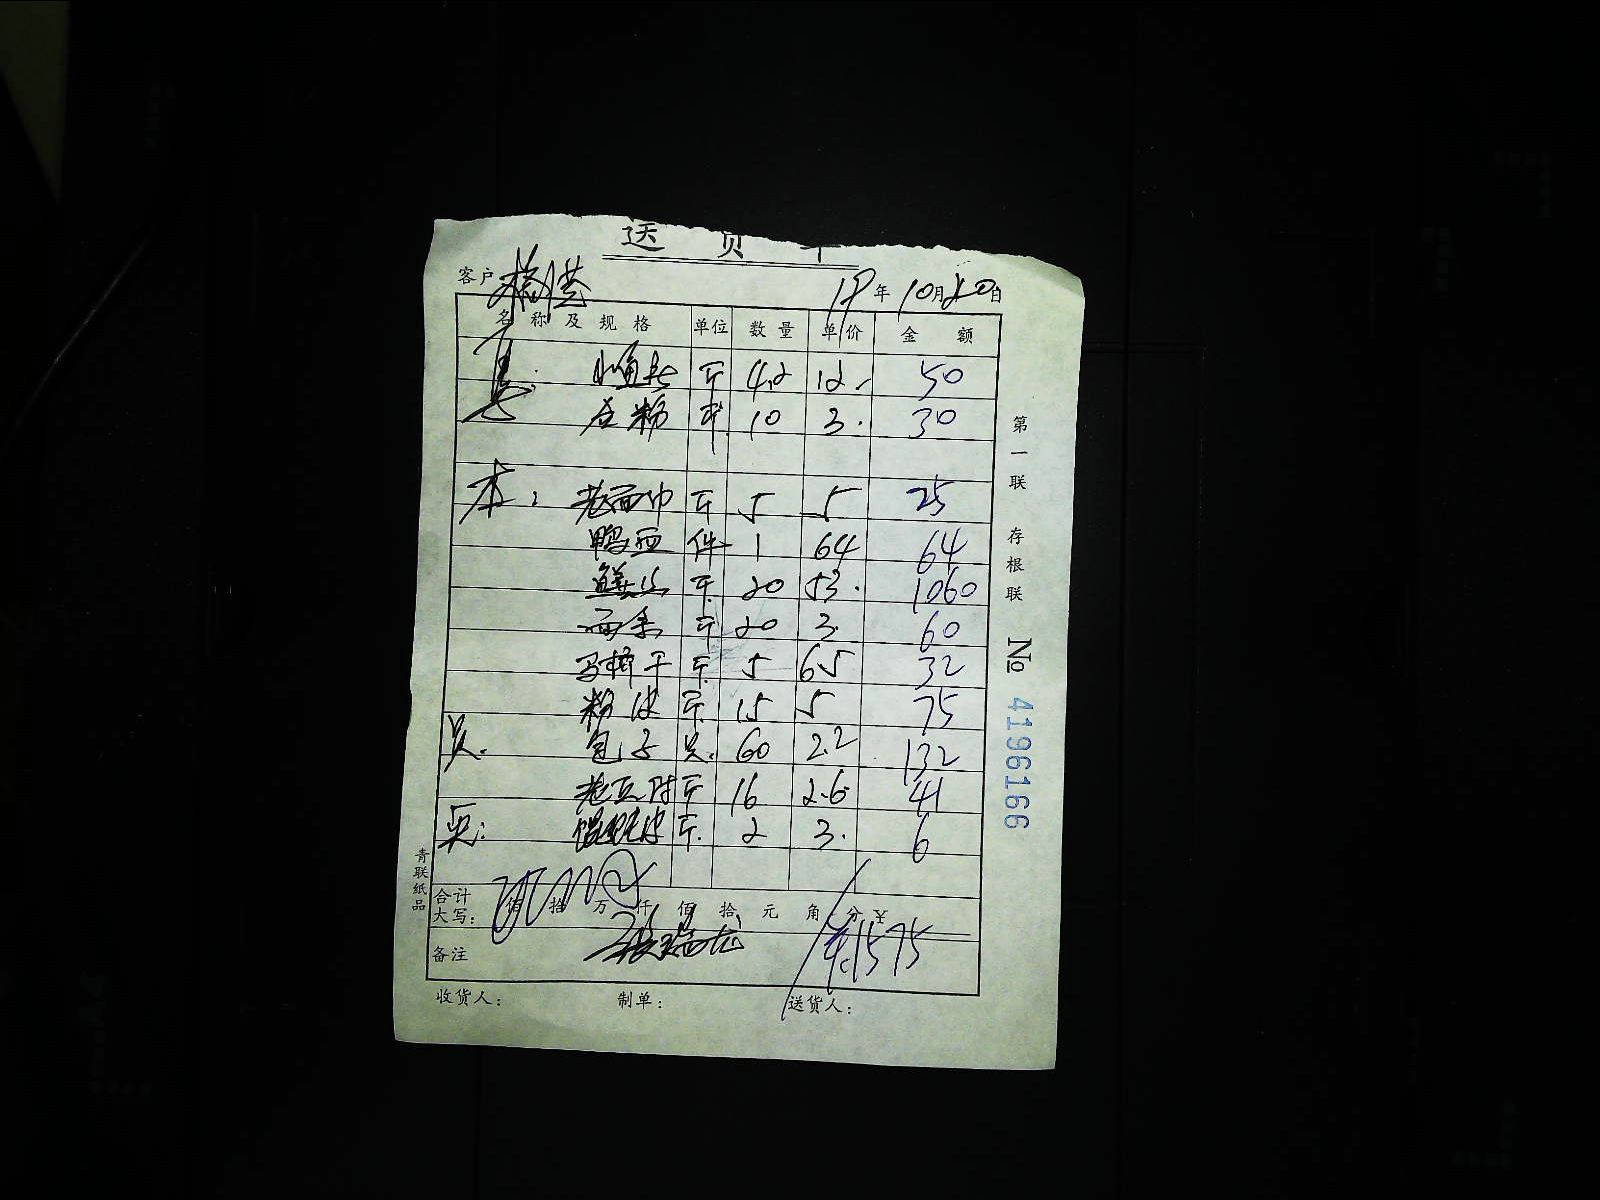 送货单
客户 19年10月20日
名称及规格 单位 数量 单价 金额
斤 4.2 12. 50
生粉 斤 10 3. 30
本: 老面巾 斤 5 5 25
鸭 件 1 64 64
斤 20 53. 1060
面条 斤 20 3. 60
马桥干 斤. 5 65 32
粉皮 斤. 15 5 75
只. 包子 只. 60 2.2 132
斤 16 2.6 41
馄饨皮 斤. 2 3. 6
合计大写: 佰 拾 万 仟 佰 拾 元 角 分 ¥
1575
备注
收货人: 制单: 送货人:
第一联 存根联 № 4196166
青联纸品